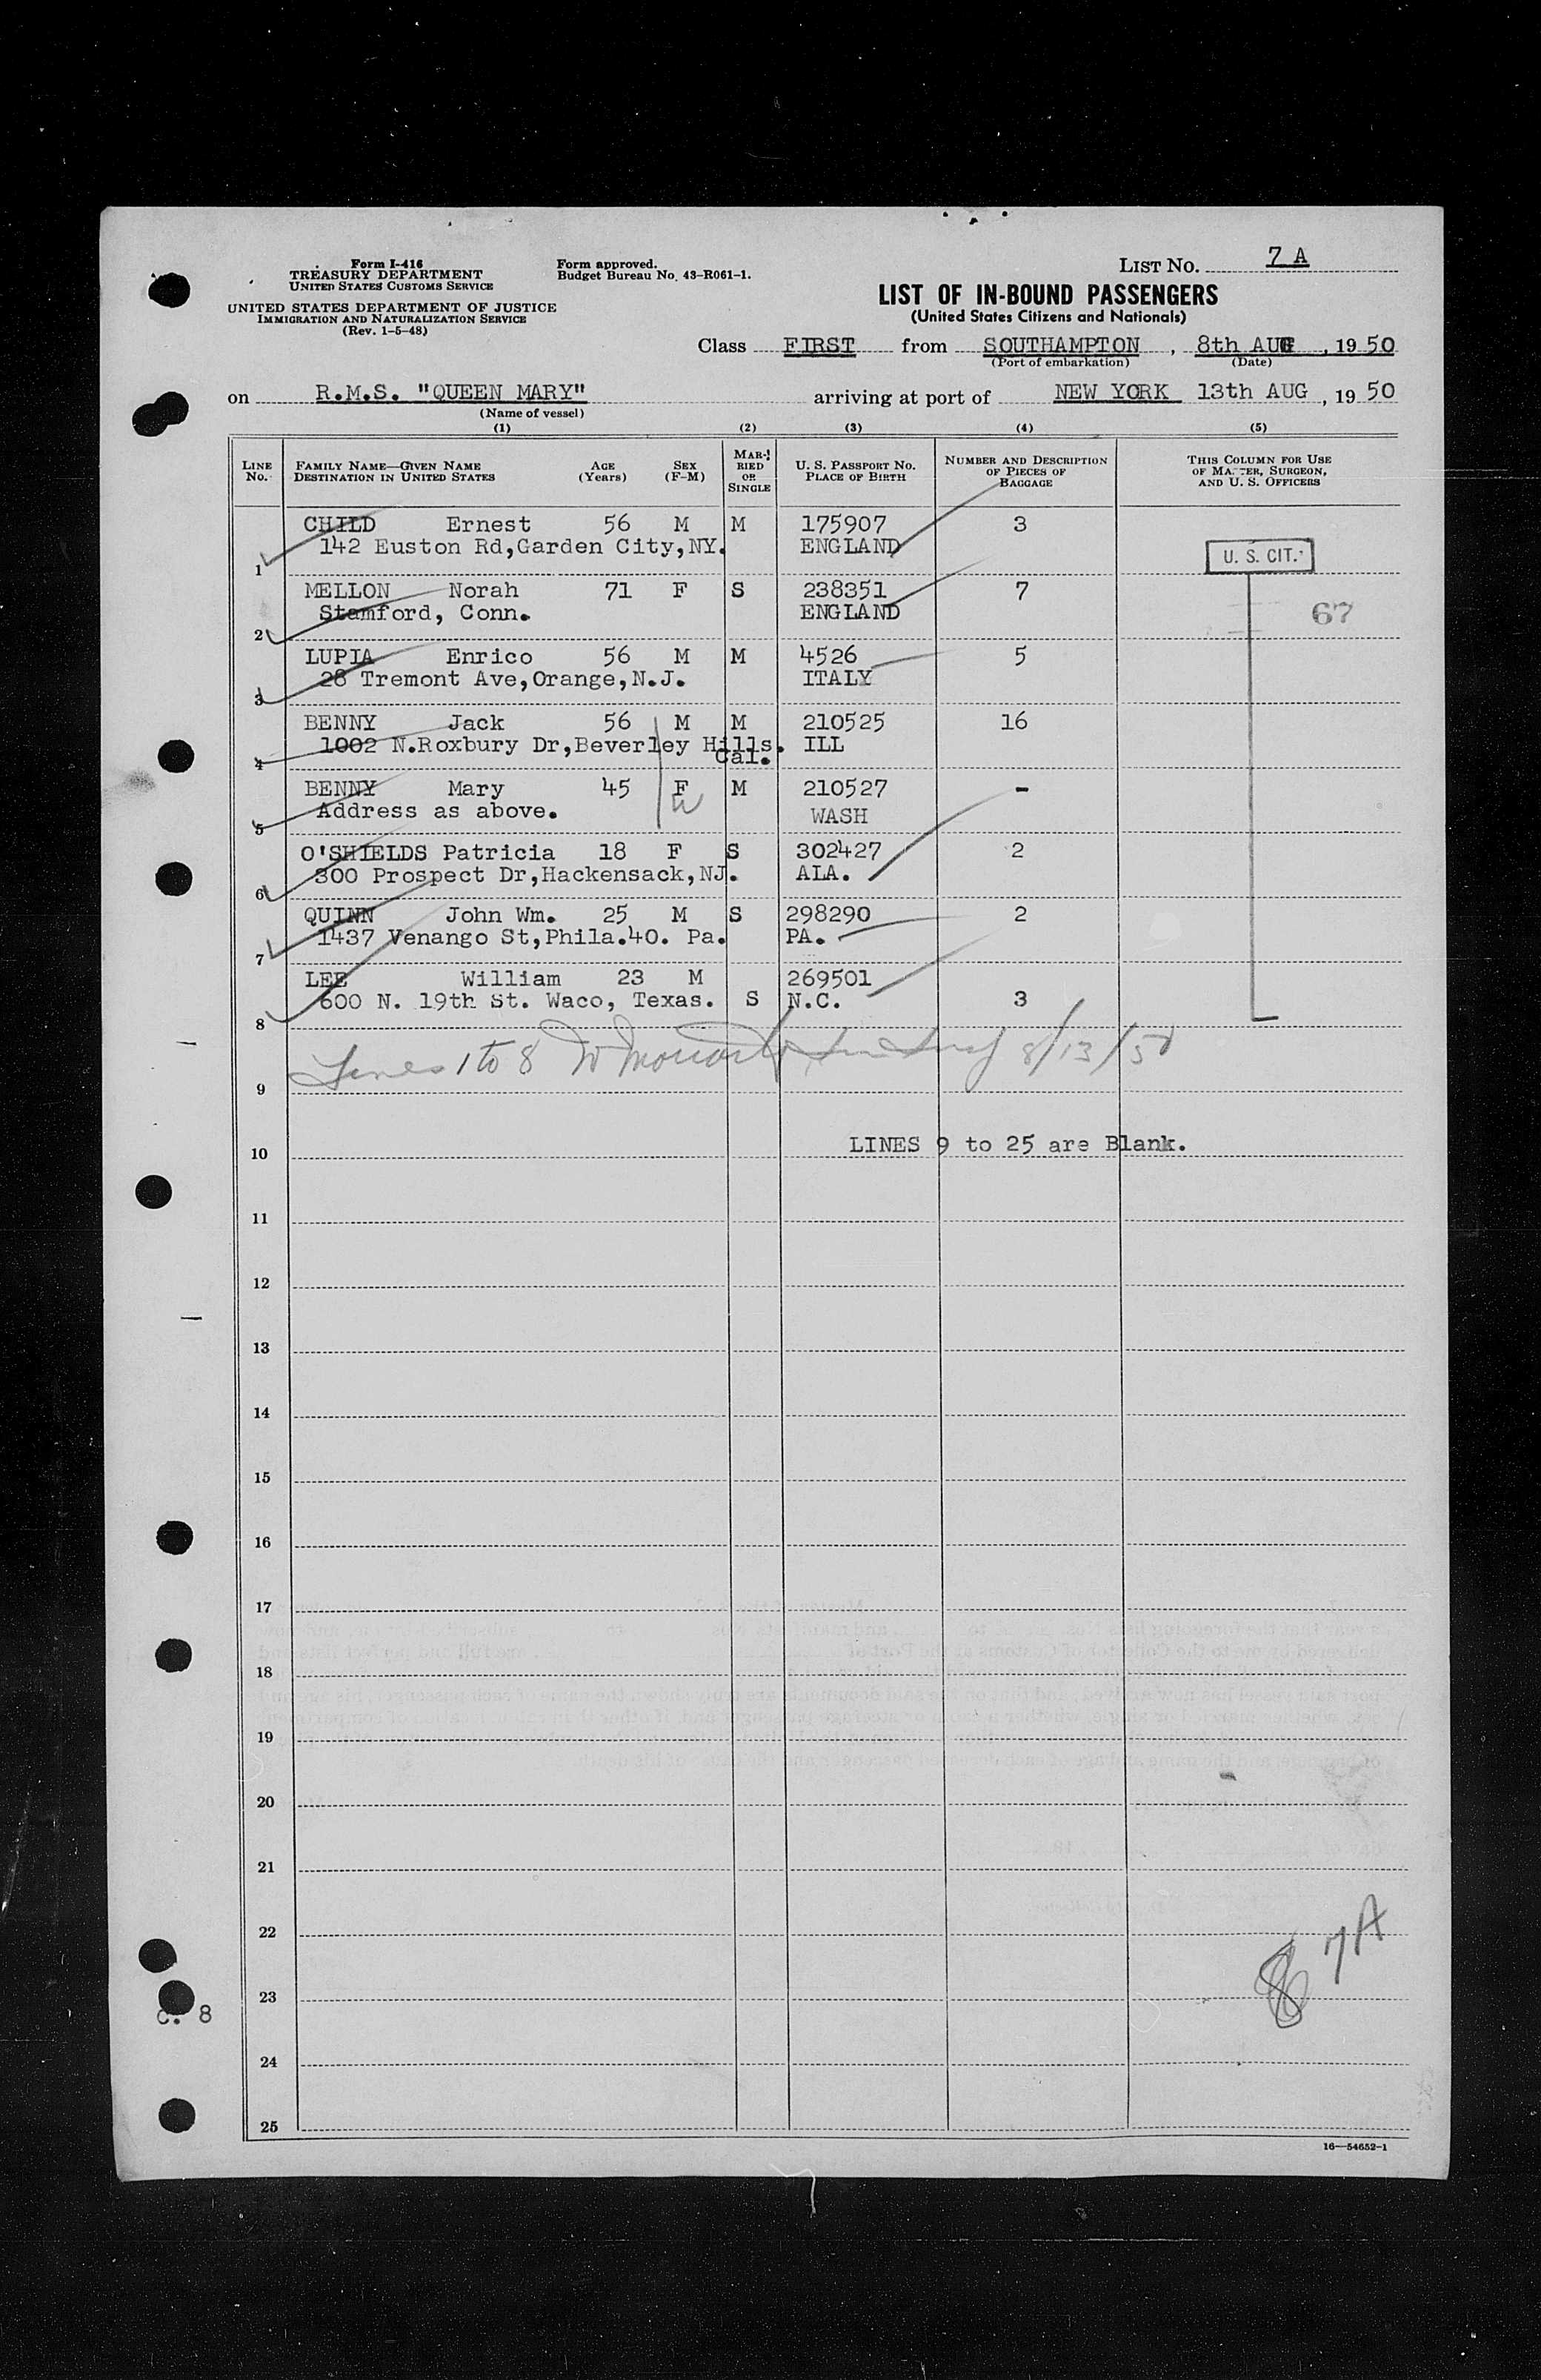 Form I-416
TREASURY DEPARTMENT
UNITED STATES CUSTOMS SERVICE
UNITED STATES DEPARTMENT OF JUSTICE
IMMIGRATION AND NATURALIZATION SERVICE
(Rev. 1-5-48)
Form approved.
Budget Bureau No. 43-R061-1.
LIST NO. 7 A
LIST OF IN-BOUND PASSENGERS
(United States Citizens and Nationals)
Class FIRST from SOUTHAMPTON, 8th AUG, 1950
(Port of embarkation) (Date)
on R.M.S. "QUEEN MARY" arriving at port of NEW YORK 13th AUG, 1950
(Name of vessel)
(1) (2) (3) (4) (5)
LINE NO.
FAMILY NAME—GIVEN NAME
DESTINATION IN UNITED STATES
AGE (Years)
SEX (F-M)
MARRIED OR SINGLE
U. S. PASSPORT NO.
PLACE OF BIRTH
NUMBER AND DESCRIPTION OF PIECES OF BAGGAGE
THIS COLUMN FOR USE OF MASTER, SURGEON, AND U. S. OFFICERS
CHILD Ernest 56 M M 175907 3
1 142 Euston Rd,Garden City,NY. ENGLAND
U. S. CIT.
MELLON Norah 71 F S 238351 7
2 Stamford, Conn. ENGLAND
67
LUPIA Enrico 56 M M 4526 5
3 28 Tremont Ave,Orange,N.J. ITALY
BENNY Jack 56 M M 210525 16
4 1002 N.Roxbury Dr,Beverley Hills. ILL
Cal.
BENNY Mary 45 F M 210527 -
5 Address as above. WASH
O'SHIELDS Patricia 18 F S 302427 2
6 300 Prospect Dr,Hackensack,NJ. ALA.
QUINN John Wm. 25 M S 298290 2
7 1437 Venango St,Phila.40. Pa. PA.
LEE William 23 M 269501
8 600 N. 19th St. Waco, Texas. S N.C. 3
Lines 1 to 8 8/13/50
9
LINES 9 to 25 are Blank.
10
11
12
13
14
15
16
17
18
19
20
21
22
7A
8
23
C. 8
24
25
16—54652-1